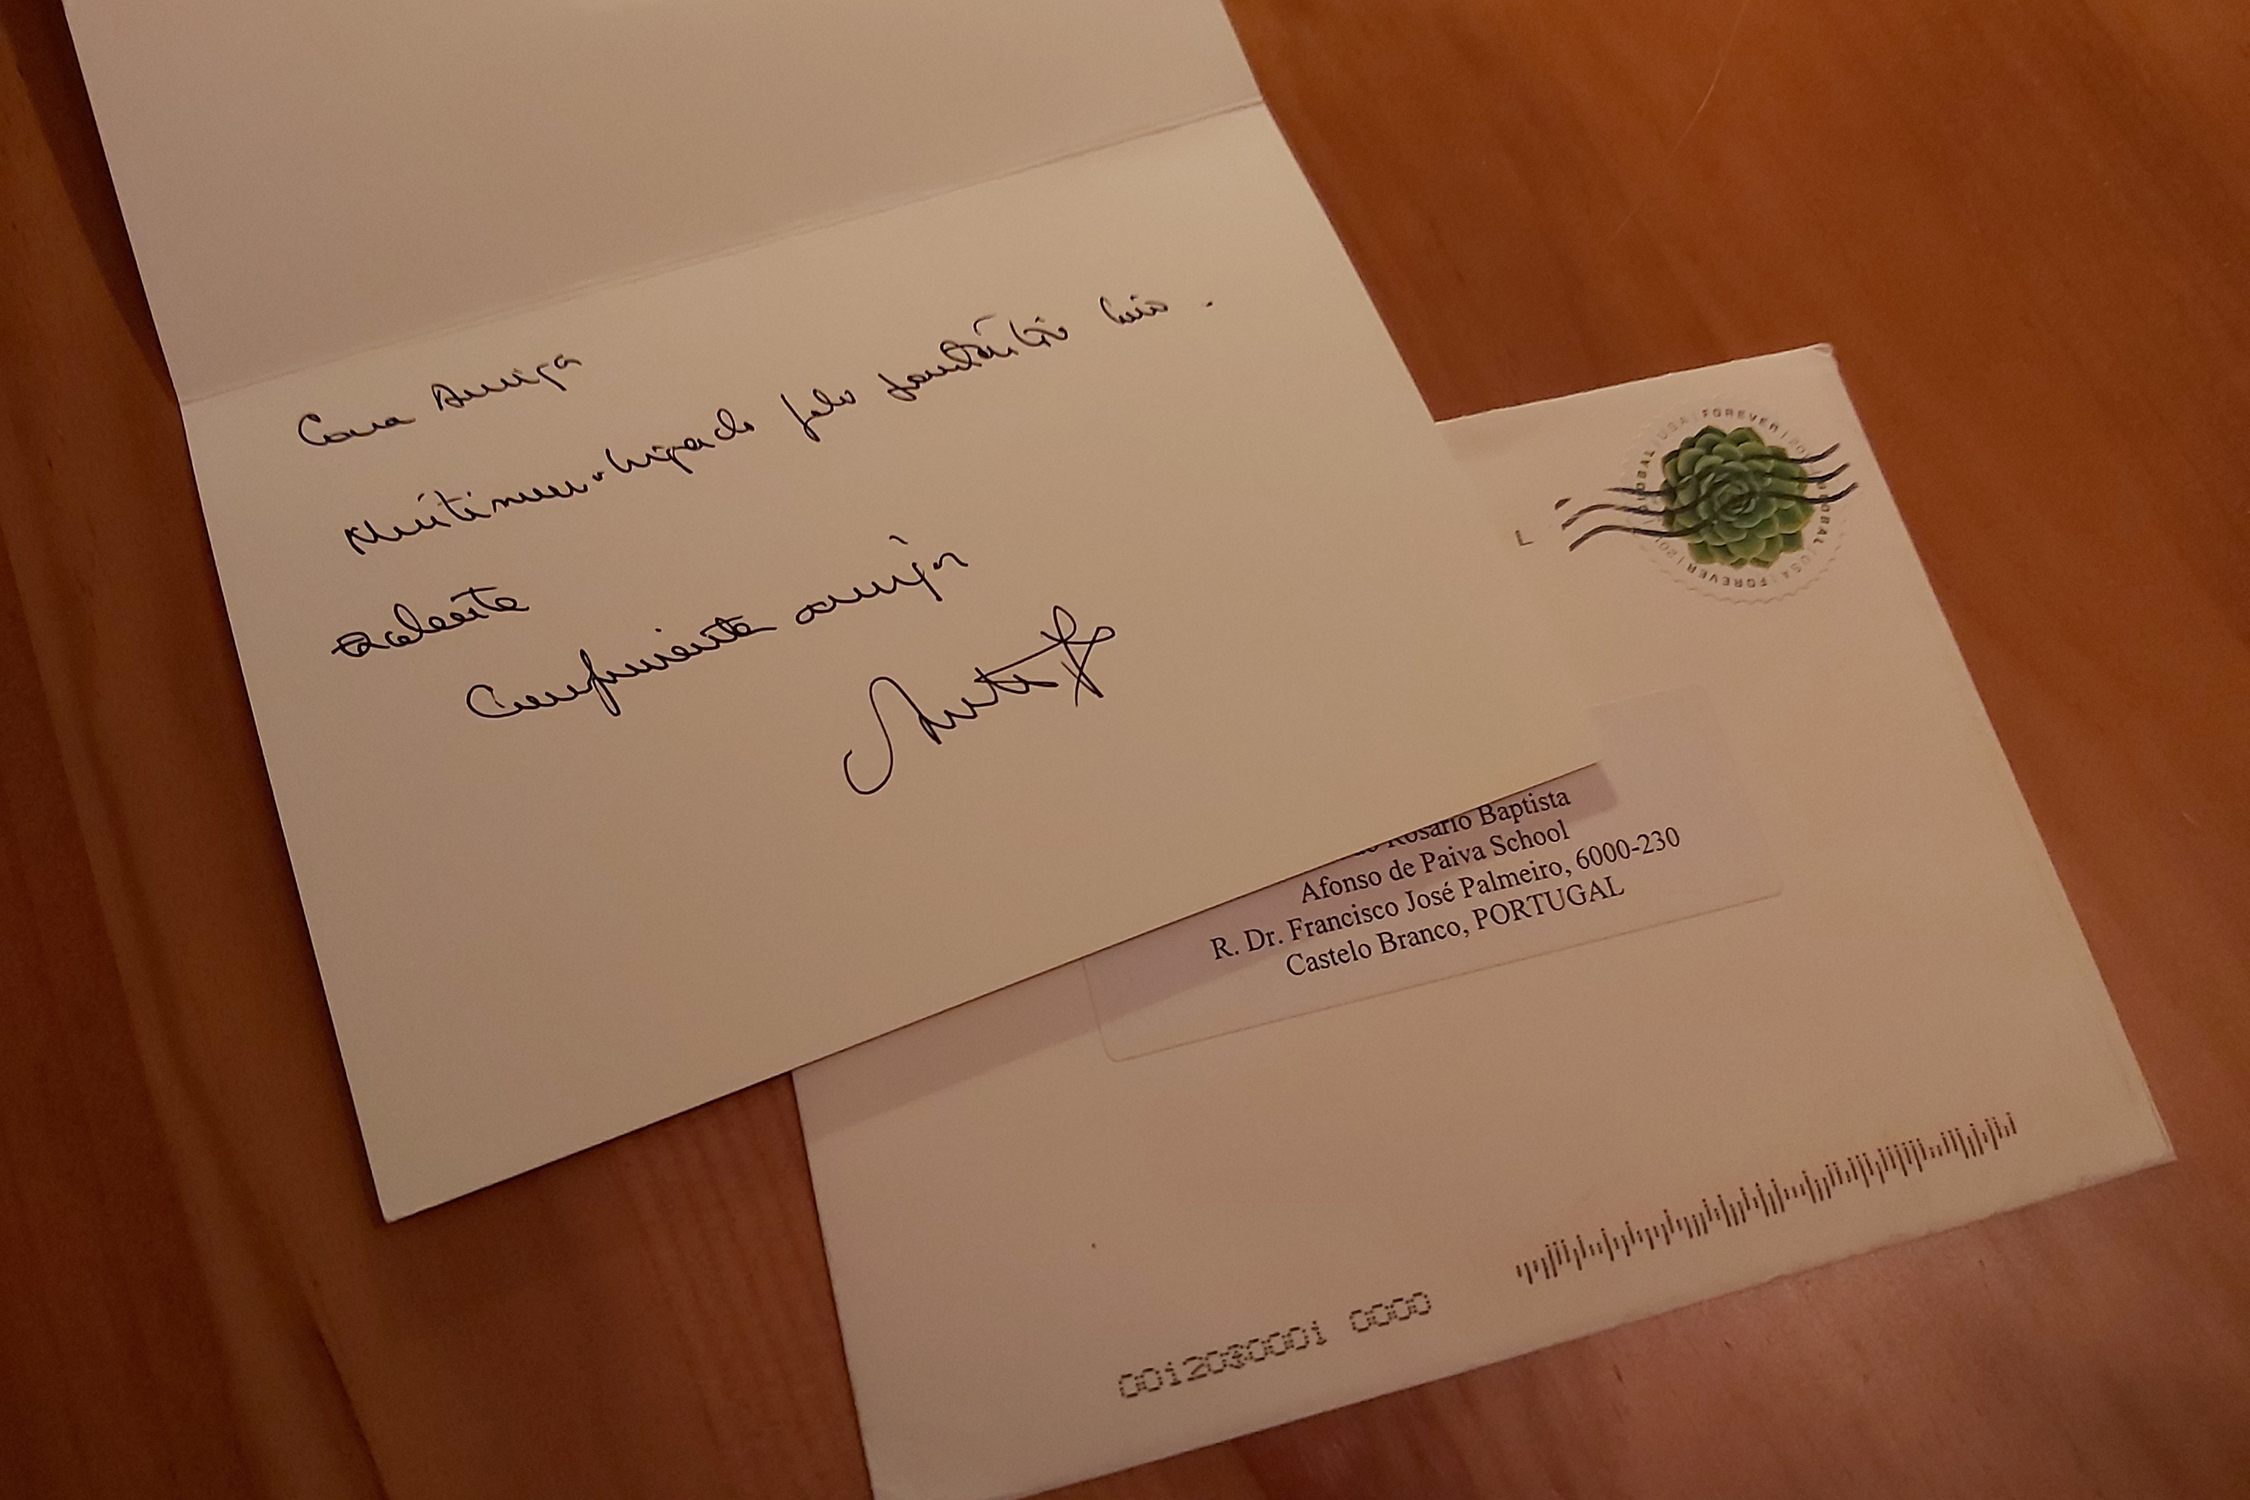 Cara Amiga
Muitíssimo obrigado pelo fantástico livro.
Excelente
Cumprimentos amigos
L
GLOBAL | USA | FOREVER
GLOBAL | USA | FOREVER
Rosário Baptista
Afonso de Paiva School
R. Dr. Francisco José Palmeiro, 6000-230
Castelo Branco, PORTUGAL
0012030001 0000